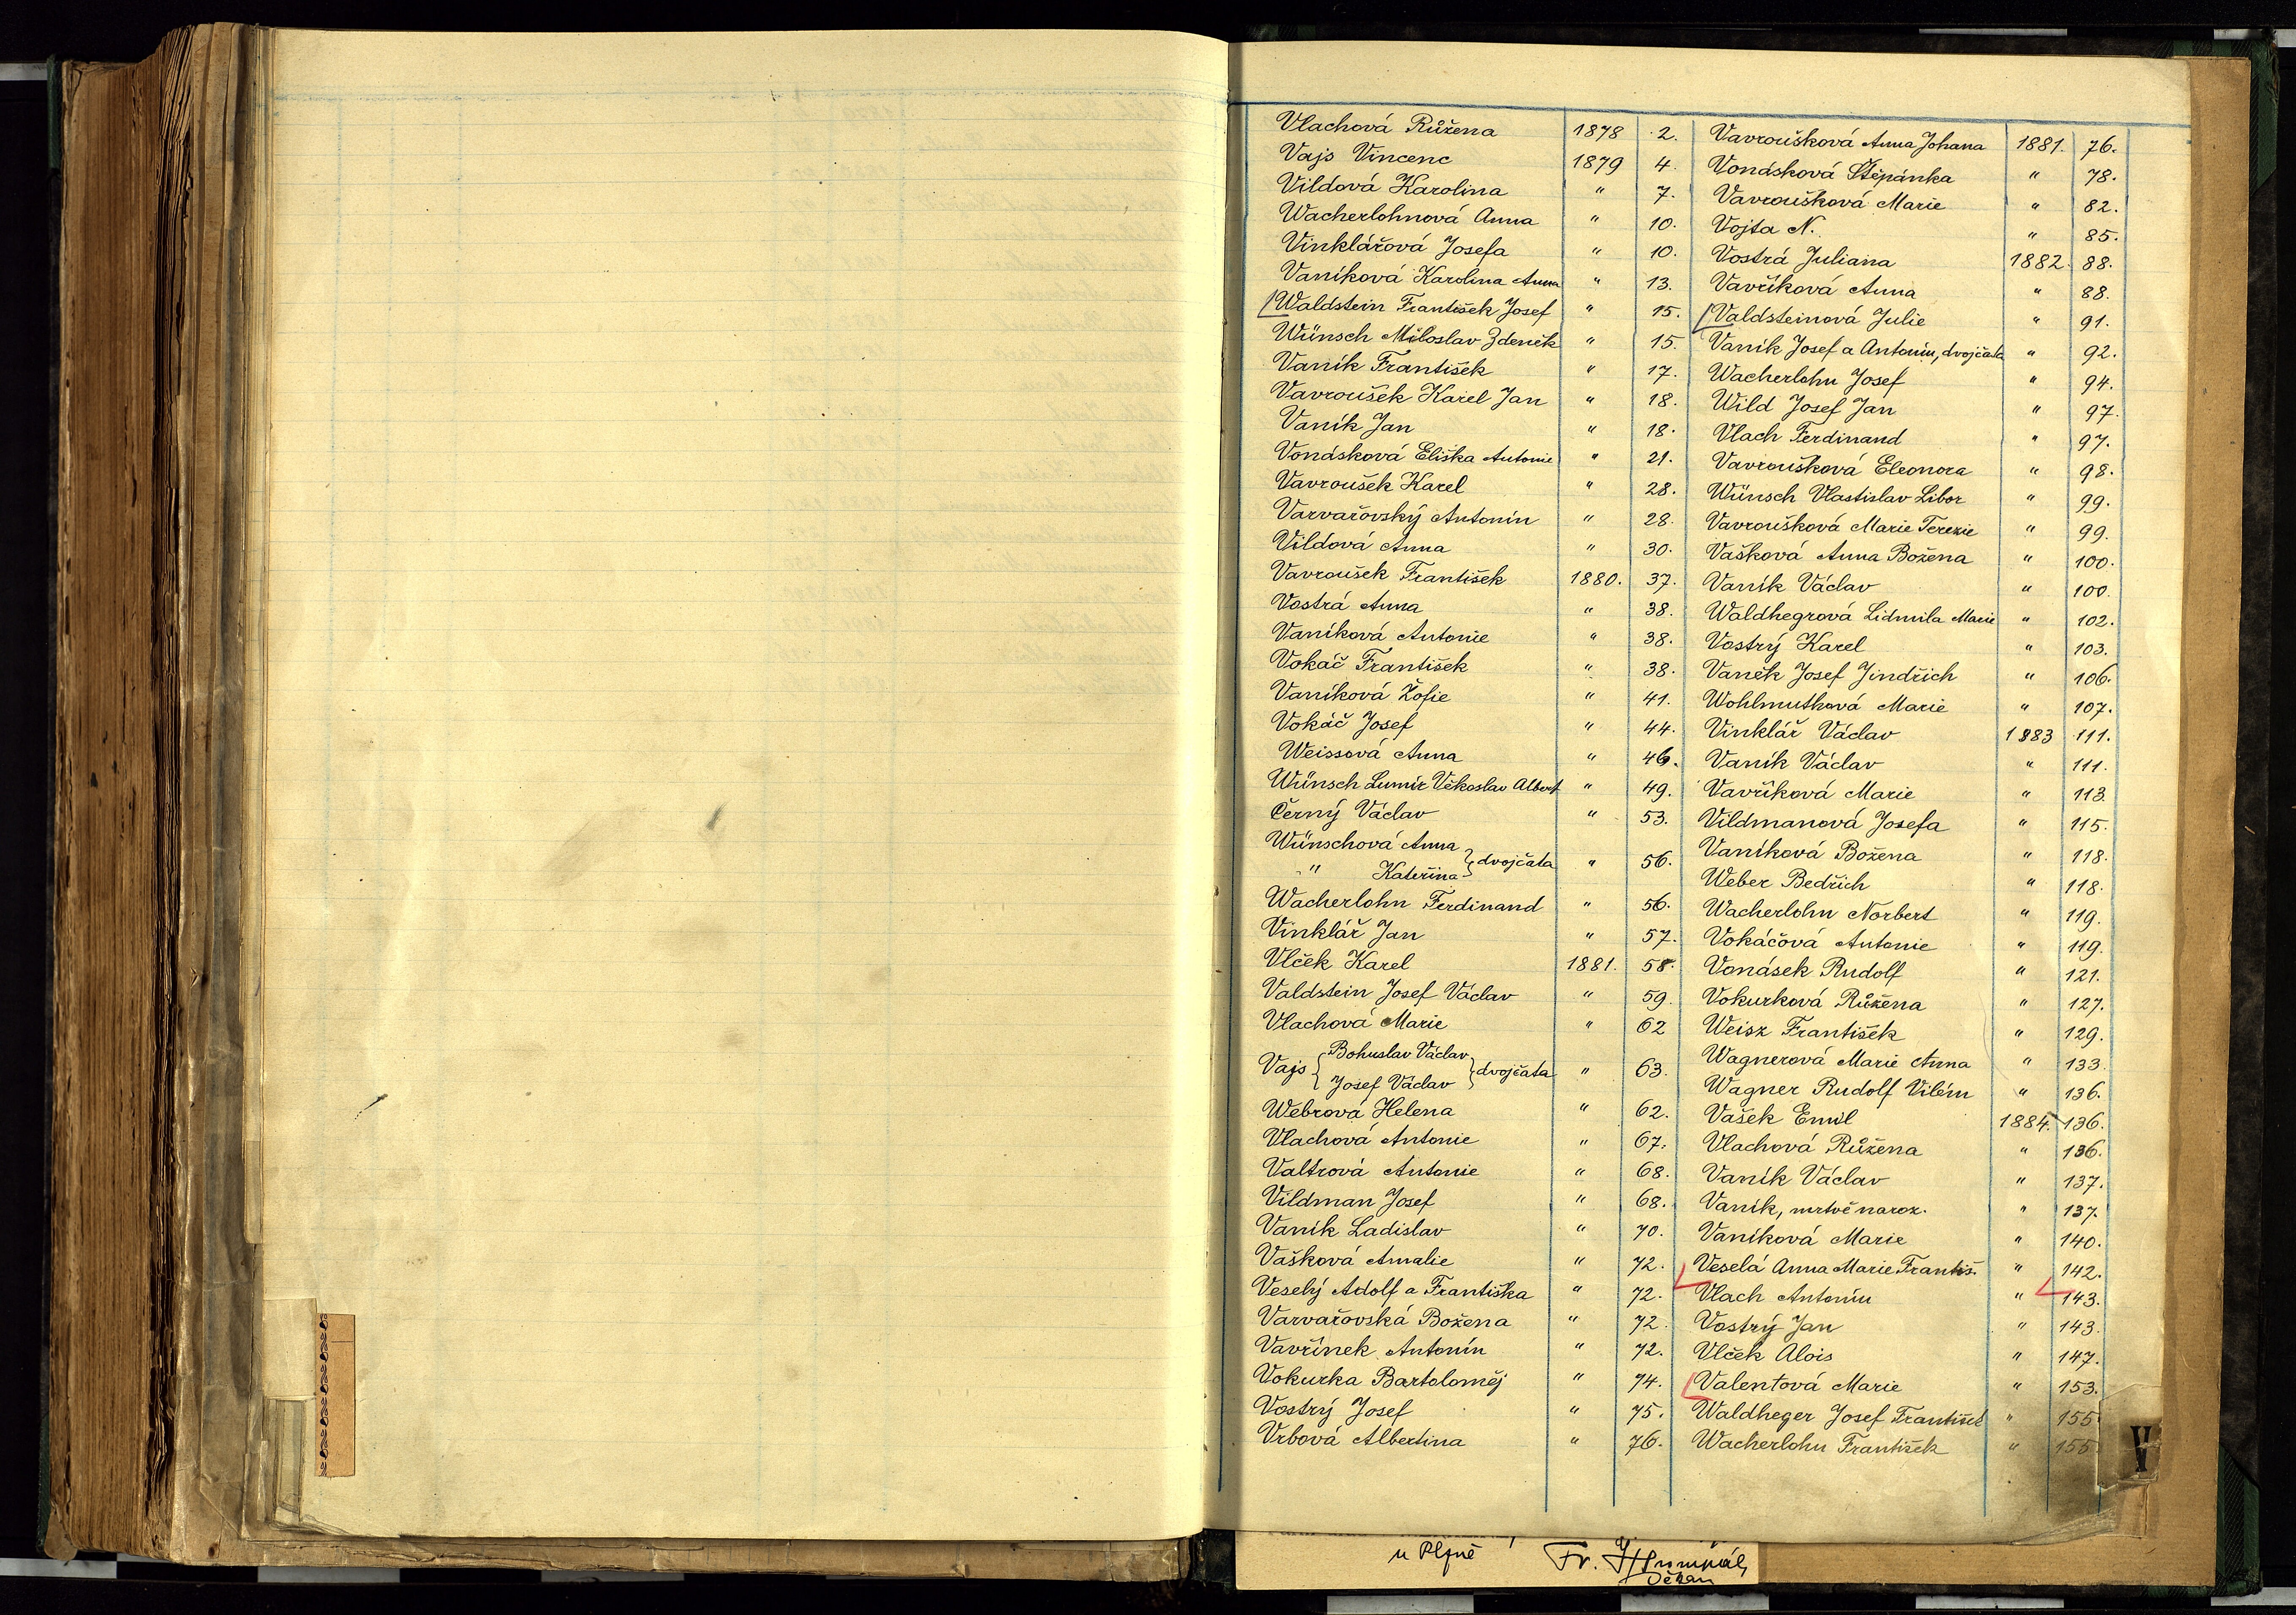 Vlachová Růžena 1878 2.
Vajs Vincenc 1879 4.
Vildová Karolina " 7.
Wacherlohnová Anna " 10.
Vinklářová Josefa " 10.
Vaníková Karolina Anna " 13.
Waldstein František Josef " 15.
Wünsch Miloslav Zdeněk " 15.
Vaník František " 17.
Vavroušek Karel Jan " 18.
Vaník Jan " 18.
Vonásková Eliška Antonie " 21.
Vavroušek Karel " 28.
Varvařovský Antonín " 28.
Vildová Anna " 30.
Vavroušek František 1880. 37.
Vostrá Anna " 38.
Vaníková Antonie " 38.
Vokáč František " 38.
Vaníková Žofie " 41.
Vokáč Josef " 44.
Weissová Anna " 46.
Wünsch Lumír Věkoslav Albert " 49.
Černý Václav " 53.
Wünschová Anna
" Kateřina } dvojčata " 56.
Wacherlohn Ferdinand " 56.
Vinklář Jan " 57.
Vlček Karel 1881. 58.
Valdstein Josef Václav " 59.
Vlachová Marie " 62
Vajs { Bohuslav Václav
Josef Václav } dvojčata " 63.
Webrová Helena " 62.
Vlachová Antonie " 67.
Valtrová Antonie " 68.
Vildman Josef " 68.
Vaník Ladislav " 70.
Vašková Amalie " 72.
Veselý Adolf a Františka " 72.
Varvařovská Božena " 72.
Vavřínek Antonín " 72.
Vokurka Bartoloměj " 74.
Vostrý Josef " 75.
Vrbová Albertina " 76.
Vavroušková Anna Johana 1881. 76.
Vonásková Štěpánka " 78.
Vavroušková Marie " 82.
Vojta N. " 85.
Vostrá Juliana 1882. 88.
Vavříková Anna " 88.
Valdsteinová Julie " 91.
Vaník Josef a Antonín, dvojčata " 92.
Wacherlohn Josef " 94.
Wild Josef Jan " 97.
Vlach Ferdinand " 97.
Vavroušková Eleonora " 98.
Wünsch Vlastislav Libor " 99.
Vavroušková Marie Terezie " 99.
Vašková Anna Božena " 100.
Vaník Václav " 100.
Waldhegrová Lidmila Marie " 102.
Vostrý Karel " 103.
Vaněk Josef Jindřich " 106.
Wohlmuthová Marie " 107.
Vinklář Václav 1883 111.
Vaník Václav " 111.
Vavříková Marie " 113.
Vildmanová Josefa " 115.
Vaníková Božena " 118.
Weber Bedřich " 118.
Wacherlohn Norbert " 119.
Vokáčová Antonie " 119.
Vonásek Rudolf " 121.
Vokurková Růžena " 127.
Weisz František " 129.
Wagnerová Marie Anna " 133.
Wagner Rudolf Vilém " 136.
Vašek Emil 1884. 136.
Vlachová Růžena " 136.
Vaník Václav " 137.
Vaník, mrtvě naroz. " 137.
Vaníková Marie " 140.
Veselá Anna Marie Františ. " 142.
Vlach Antonín " 143.
Vostrý Jan " 143.
Vlček Alois " 147.
Valentová Marie " 153.
Waldheger Josef František " 155.
Wacherlohn František " 155.
V
W
u Plzně Fr.
Děkan